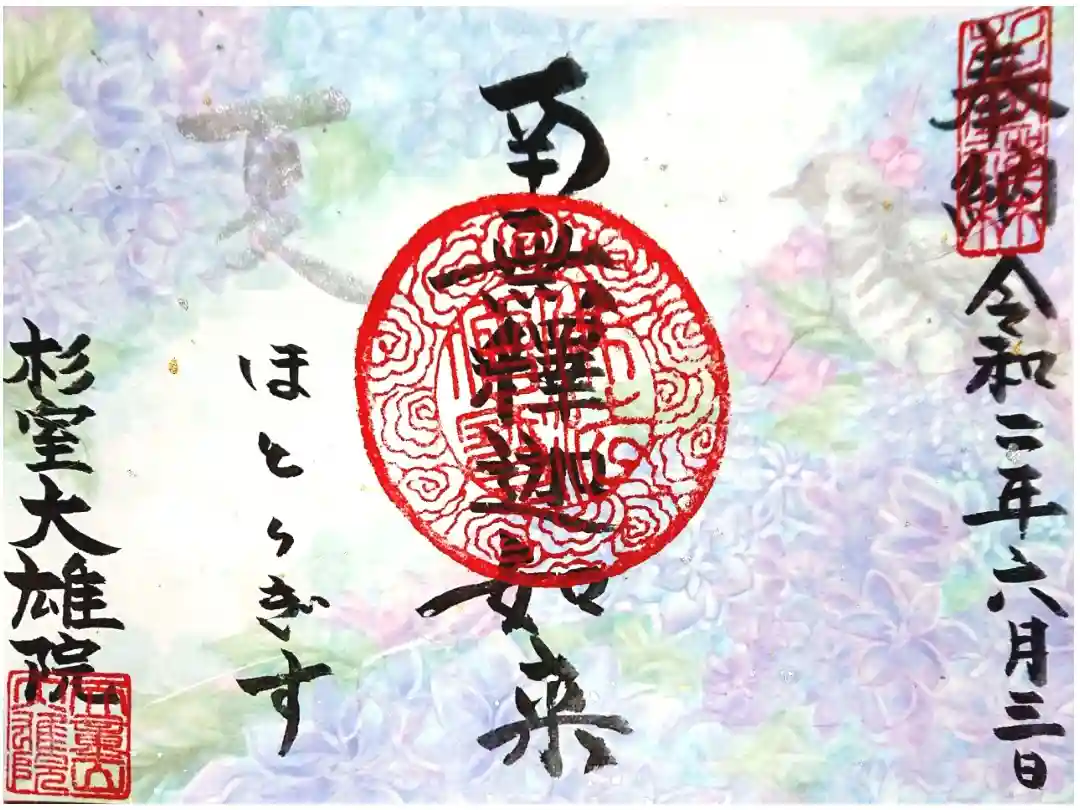 奉納
令和二年六月三日
南無釋迦如来
夏
ほととぎす
杉室大雄院